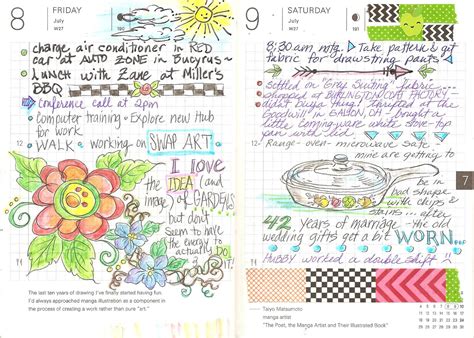 8 FRIDAY
July
W27
190
charge air conditioner in RED
car at AUTO ZONE in Bucyrus
LUNCH with Zane at Miller's
BBQ
Conference call at 2pm
computer training - Explore new Hub
for work
WALK working on SWAP ART
I LOVE
the IDEA (and
image) of GARDENS
but don't
seem to have
the energy to
actually DO
it!
The last ten years of drawing I've finally started having fun.
I'd always approached manga illustration as a component in
the process of creating a work rather than pure "art."
9 SATURDAY
July
W27
8:30 am mtg. Take pattern & get
fabric for drawstring pants
settled on "Grey Suiting" fabric...
shopped at BURLINGTON COAT FACTORY
didn't buy a thing! thrifted at the
Goodwill in GALION, OH - bought a
little corningware white stove top
pan with lid
12 Range - oven - microwave safe
mine are getting to
be in
bad shape
with chips &
stains... after
42 years of marriage - the old
wedding gifts get a bit WORN...
HUBBY worked a double shift!
7
Taiyo Matsumoto
manga artist
"The Post, the Manga Artist and Their Illustrated Book"